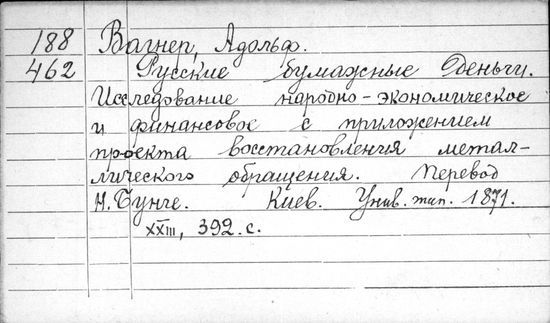 188 Вагнер, Адольф.
462 Русские бумажные Деньги.
Исследование народно-экономическое
и финансовое с приложением
проекта восстановления метал-
лического обращения. Перевод
Н. Бунге. Киев. Унив. тип. 1871.
XXIII, 392. с.